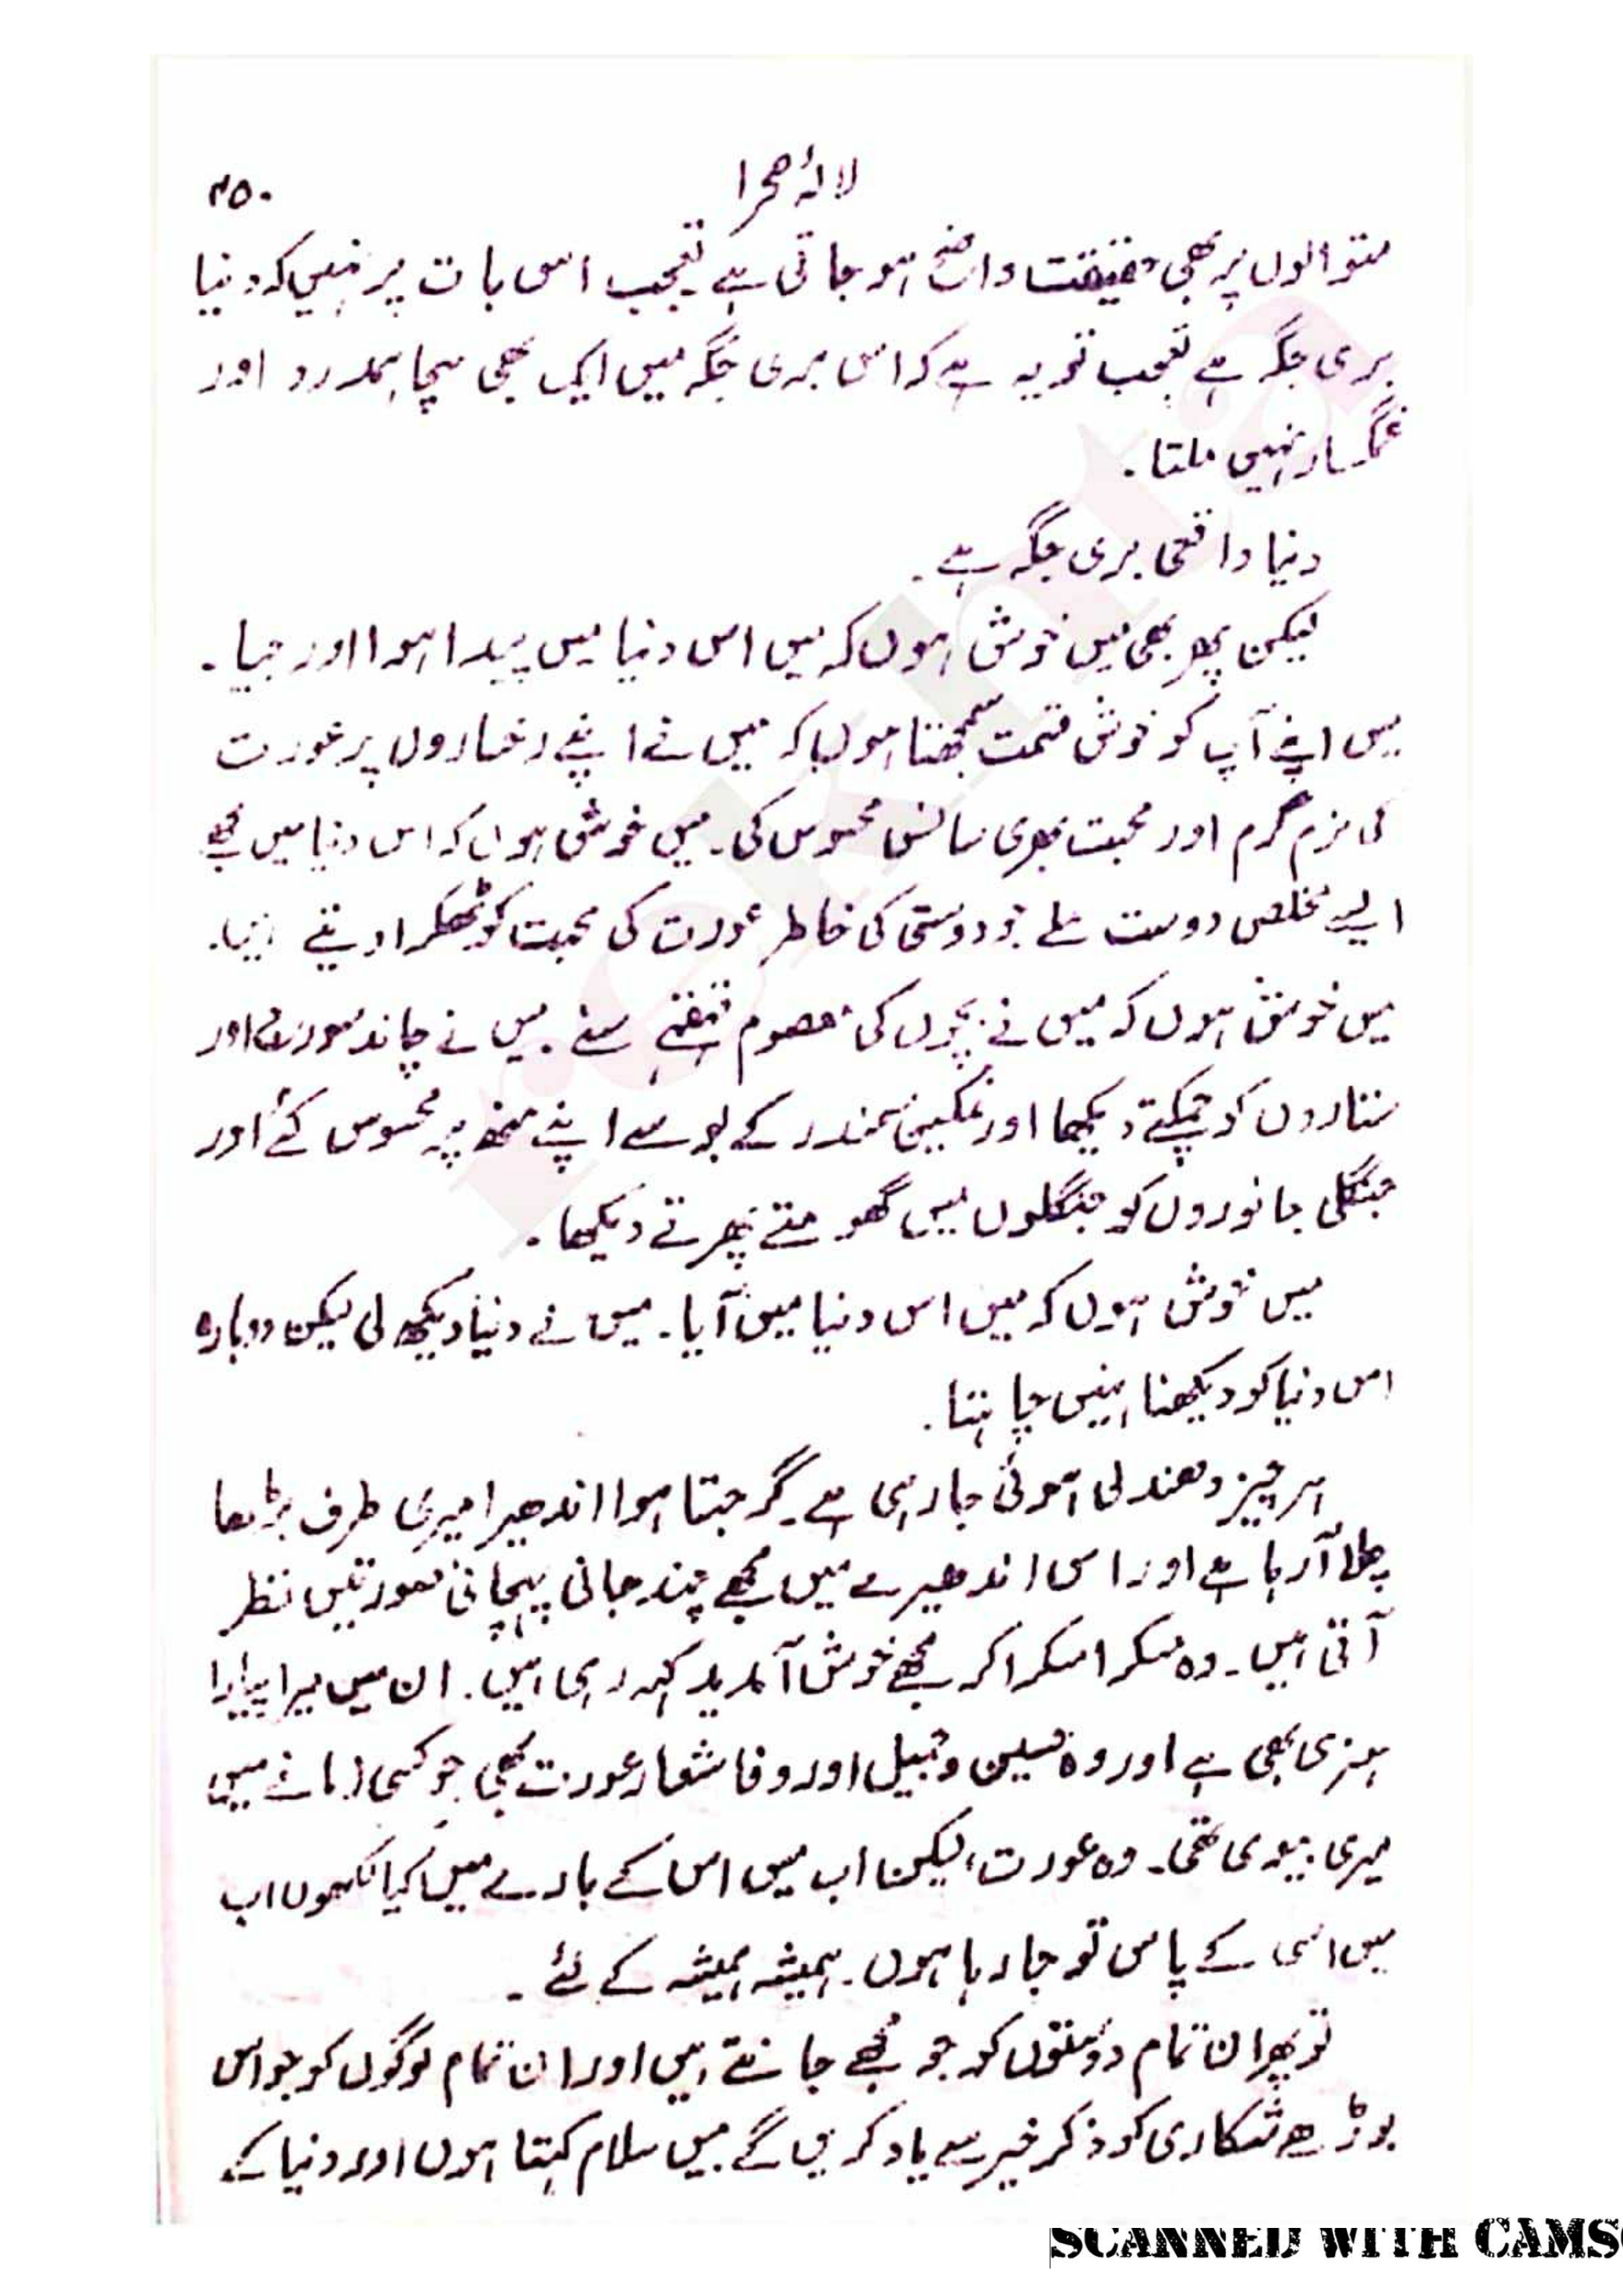 لالۂ صحرا ۳۵۰
متوالوں پر بھی حقیقت واضح ہو جاتی ہے تعجب اس بات پر نہیں کہ دنیا
بری جگہ ہے تعجب تو یہ ہے کہ اس بری جگہ میں ایک بھی سچا ہمدرد اور
غمگسار نہیں ملتا۔
دنیا واقعی بری جگہ ہے۔
لیکن پھر بھی میں خوش ہوں کہ میں اس دنیا میں پیدا ہوا اور جیا۔
میں اپنے آپ کو خوش قسمت سمجھتا ہوں کہ میں نے اپنے رخساروں پر عورت
کی نرم گرم اور محبت بھری سانس محسوس کی۔ میں خوش ہوں کہ اس دنیا میں مجھے
ایسے مخلص دوست ملے جو دوستی کی خاطر عورت کی محبت کو ٹھکرا دیتے ہیں۔
میں خوش ہوں کہ میں نے بچوں کی معصوم قہقہے سنے۔ میں نے چاند سورج اور
ستاروں کو چمکتے دیکھا اور نمکین سمندر کے بوسے اپنے منھ پہ محسوس کئے اور
جنگلی جانوروں کو جنگلوں میں گھومتے پھرتے دیکھا۔
میں خوش ہوں کہ میں اس دنیا میں آیا۔ میں نے دنیا دیکھ لی لیکن دوبارہ
اس دنیا کو دیکھنا نہیں چاہتا۔
ہر چیز دھندلی ہوئی جا رہی ہے۔ گرجتا ہوا اندھیرا میری طرف بڑھا
چلا آ رہا ہے اور اس اندھیرے میں مجھے چند جانی پہچانی صورتیں نظر
آتی ہیں۔ وہ مسکرا مسکرا کر مجھے خوش آمدید کہہ رہی ہیں۔ ان میں میرا پیارا
ہنری بھی ہے اور وہ حسین و جمیل اور وفا شعار عورت بھی جو کسی زمانے میں
میری بیوی تھی۔ وہ عورت، لیکن اب میں اس کے بارے میں کیا لکھوں اب
میں اسی کے پاس تو جا رہا ہوں۔ ہمیشہ ہمیشہ کے لئے۔
تو پھر ان تمام دوستوں کو جو مجھے جانتے ہیں اور ان تمام لوگوں کو جو اس
بوڑھے شکاری کو ذکر خیر سے یاد کریں گے میں سلام کہتا ہوں اور دنیا کے
rekhta
SCANNED WITH CAMS